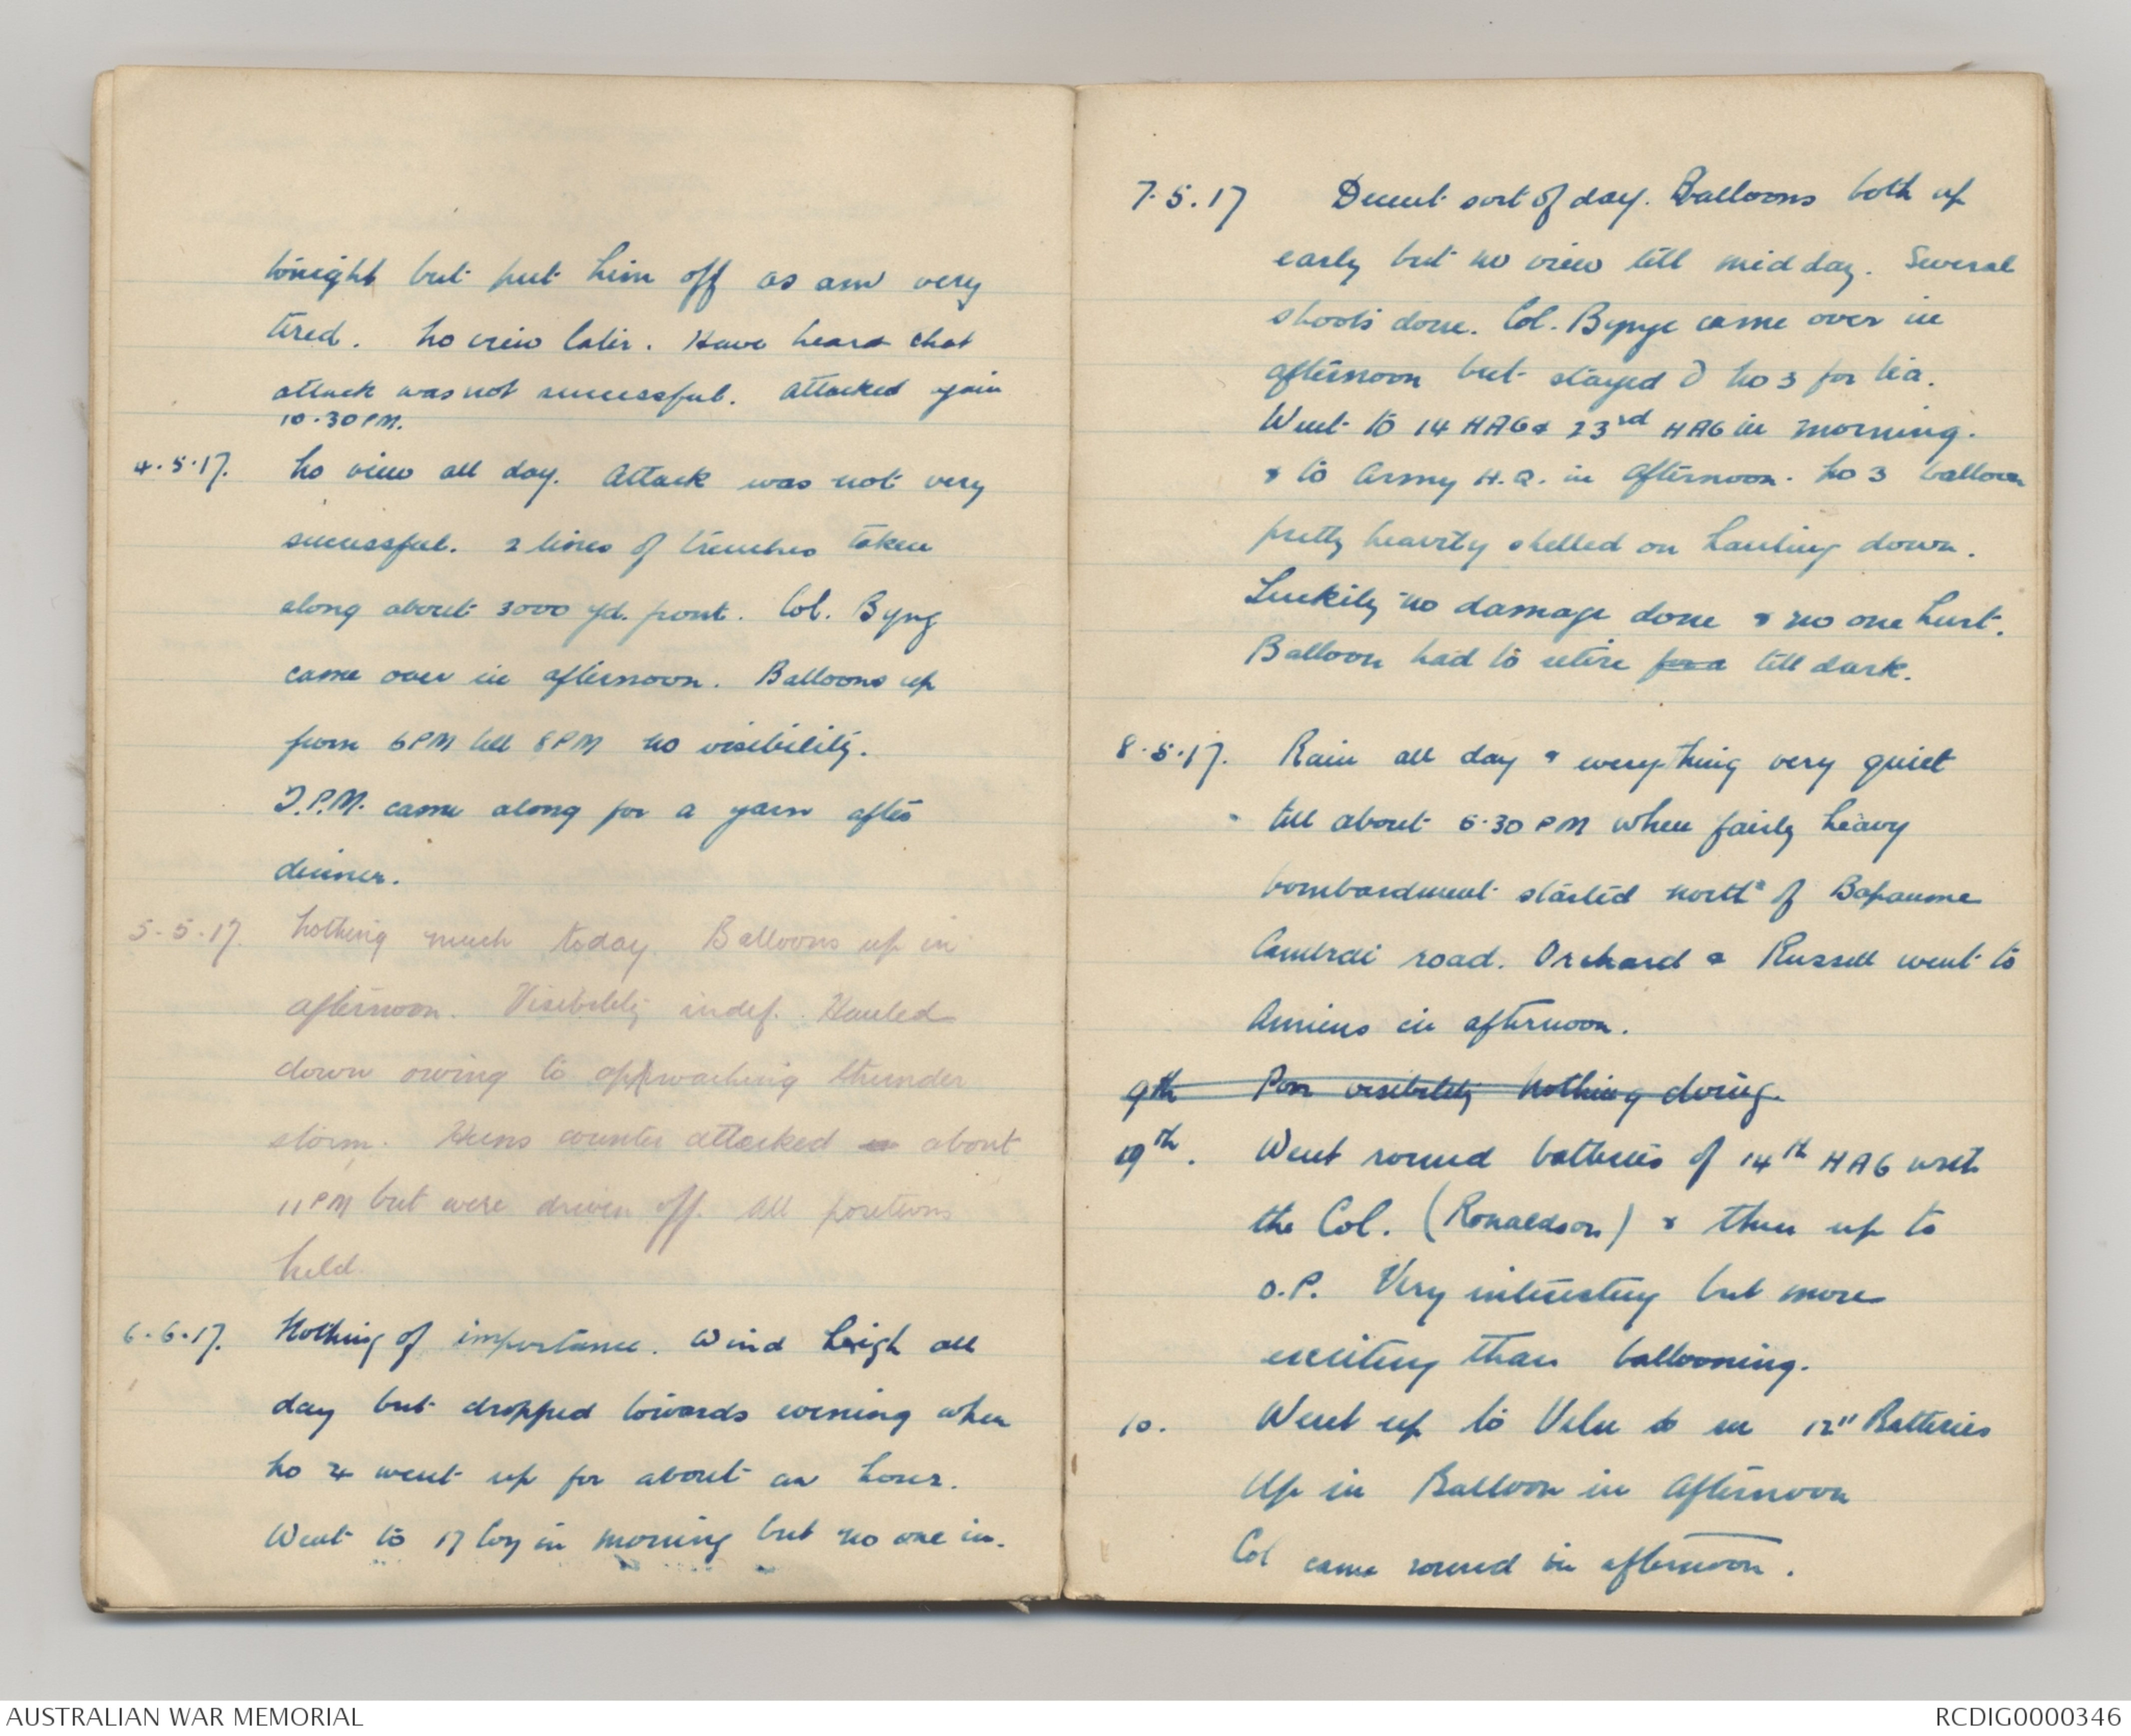 tonight but put him off as am very
tired. No view later. Have heard that
attack was not successful. Attacked again
10.30 PM.
4.5.17. No view all day. Attack was not very
successful. 2 lines of trenches taken
along about 3000 yd. front. Col. Byng
came over in afternoon. Balloons up
from 6PM till 8PM no visibility.
came along for a yarn after
dinner.
5.5.17. Nothing much today. Balloons up in
afternoon. Visibility indef. Hauled
down owing to approaching thunder
storm. Huns counter attacked about
11PM but were driven off. All positions
held.
6.6.17. Nothing of importance. Wind high all
day but dropped towards evening when
No 4 went up for about an hour.
Went to 17 Coy in morning but no one in.
7.5.17 Decent sort of day. Balloons both up
early but no view till mid day. Several
shoots done. Col. came over in
afternoon but stayed No 3 for tea.
Went to 14 HAG & 23rd HAG in morning.
& to Army H.Q. in afternoon. No 3 balloon
pretty heavily shelled on hauling down.
Luckily no damage done & no one hurt.
Balloon had to retire till dark.
8.5.17. Rain all day & everything very quiet
till about 6.30 PM when fairly heavy
bombardment started north of Bapaume
Cambrai road. Orchard & Russell went to
Amiens in afternoon.
9th Poor visibility nothing doing.
9th. Went round batteries of 14th HAG with
the Col. (Ronaldson) & then up to
O.P. Very interesting but more
exciting than ballooning.
10. Went up to Velu 12" Batteries
Up in Balloon in Afternoon
Col came round in afternoon.
AUSTRALIAN WAR MEMORIAL
RCDIG0000346